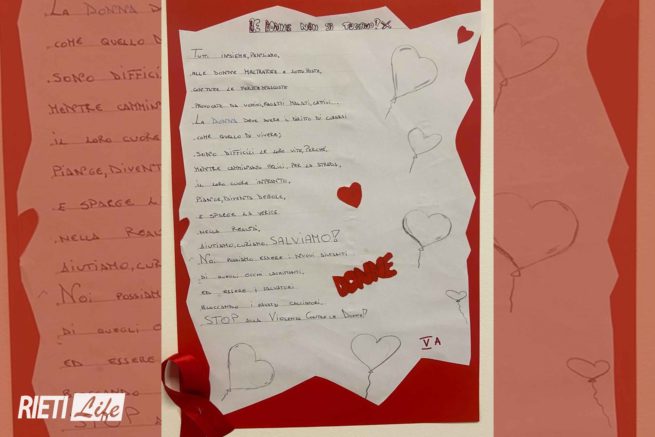 LE DONNE NON SI TOCCANO!
TUTTI INSIEME, PENSIAMO,
ALLE DONNE MALTRATTATE E SOTTOPOSTE,
CON TUTTE LE FERITE NASCOSTE
PROVOCATE DA UOMINI, RAGAZZI MALATI, CATTIVI...
LA DONNA DEVE AVERE IL DIRITTO DI
COME QUELLO DI VIVERE;
SONO DIFFICILI LE LORO VITE, PERCHÉ,
MENTRE CAMMINANO FELICI, PER LA STRADA,
IL LORO CUORE INFRANTO,
PIANGE, DIVENTA DEBOLE,
E SPARGE LA
NELLA REALTÀ,
AIUTIAMO, CURIAMO, SALVIAMO!
NOI POSSIAMO ESSERE I NUOVI
DI QUEGLI OCCHI LUCCICANTI,
ED ESSERE I SALVATORI
BLOCCANDO I CACCIATORI.
DONNE
STOP ALLA VIOLENZA CONTRO LE DONNE!
V A
LA DONNA D
COME QUELLO D
SONO DIFFIC
MENTRE CAMMIN
IL LORO CUORE
PIANGE, DIVENT
E SPARGE L
NELLA REAL
AIUTIAMO, CUR
NOI POSSIAM
DI QUEGLI O
ED ESSERE
STOP
RIETI Life